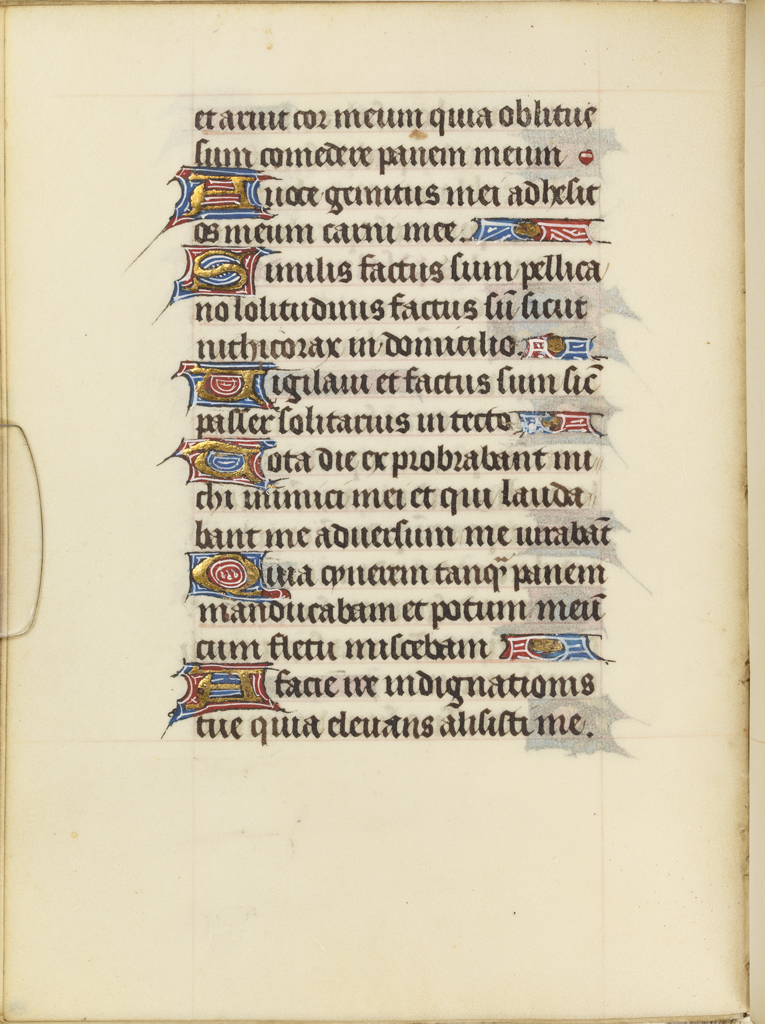 et aruit cor meum quia oblitus
sum comedere panem meum
A uoce gemitus mei adhesit
os meum carni mee.
Similis factus sum pellica
no solitudinis factus sū sicut
nithicorax in domicilio.
Uigilaui et factus sum sic̄
passer solitarius in tecto
Tota die exprobrabant mi
chi inimici mei et qui lauda
bant me aduersum me iurabāt
Quia cynerem tanq̄ panem
manducabam et potum meū
cum fletu miscebam
A facie ire indignationis
tue quia eleuans alisisti me.